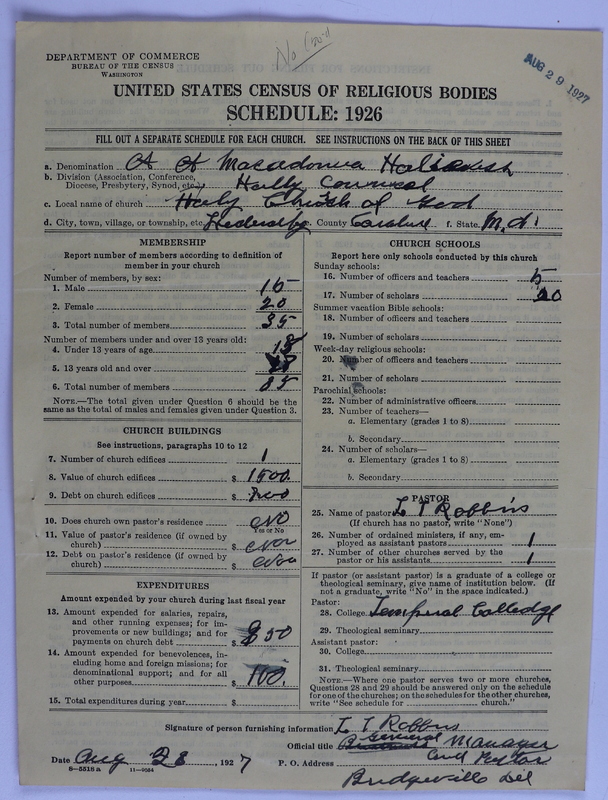 No
AUG 29 1927
DEPARTMENT OF COMMERCE
BUREAU OF THE CENSUS
WASHINGTON
UNITED STATES CENSUS OF RELIGIOUS BODIES
SCHEDULE: 1926
FILL OUT A SEPARATE SCHEDULE FOR EACH CHURCH. SEE INSTRUCTIONS ON THE BACK OF THIS SHEET
a. Denomination A A Macadonia
b. Division (Association, Conference,
Diocese, Presbytery, Synod, etc.) Holly
c. Local name of church of God
d. City, town, village, or township, etc. County f. State Md
MEMBERSHIP
Report number of members according to definition of
member in your church
Number of members, by sex:
1. Male 15
2. Female 20
3. Total number of members 35
Number of members under and over 13 years old:
4. Under 13 years of age
5. 13 years old and over
6. Total number of members
NOTE.—The total given under Question 6 should be the
same as the total of males and females given under Question 3.
CHURCH BUILDINGS
See instructions, paragraphs 10 to 12
7. Number of church edifices 1
8. Value of church edifices $ 1500.
9. Debt on church edifices $
10. Does church own pastor's residence No
Yes or No
11. Value of pastor's residence (if owned by
church) $
12. Debt on pastor's residence (if owned by
church) $
EXPENDITURES
Amount expended by your church during last fiscal year
13. Amount expended for salaries, repairs,
and other running expenses; for im-
provements or new buildings; and for
payments on church debt $ 50
14. Amount expended for benevolences, in-
cluding home and foreign missions; for
denominational support; and for all
other purposes $ 100.
15. Total expenditures during year $
CHURCH SCHOOLS
Report here only schools conducted by this church
Sunday schools:
16. Number of officers and teachers 5
17. Number of scholars 20
Summer vacation Bible schools:
18. Number of officers and teachers
19. Number of scholars
Week-day religious schools:
20. Number of officers and teachers
21. Number of scholars
Parochial schools:
22. Number of administrative officers
23. Number of teachers—
a. Elementary (grades 1 to 8)
b. Secondary
24. Number of scholars—
a. Elementary (grades 1 to 8)
b. Secondary
PASTOR
25. Name of pastor L T Robbins
(If church has no pastor, write "None")
26. Number of ordained ministers, if any, em-
ployed as assistant pastors 1
27. Number of other churches served by the
pastor or his assistants 1
If pastor (or assistant pastor) is a graduate of a college or
theological seminary, give name of institution below. (If
not a graduate, write "No" in the space indicated.)
Pastor:
28. College
29. Theological seminary
Assistant pastor:
30. College
31. Theological seminary
NOTE.—Where one pastor serves two or more churches,
Questions 28 and 29 should be answered only on the schedule
for one of the churches; on the schedules for the other churches,
write "See schedule for church."
Signature of person furnishing information L T Robbins
Official title General Manager
and
Date Aug 23, 1927 P. O. Address
Bridgeville Del
8—5516 a 11—9564